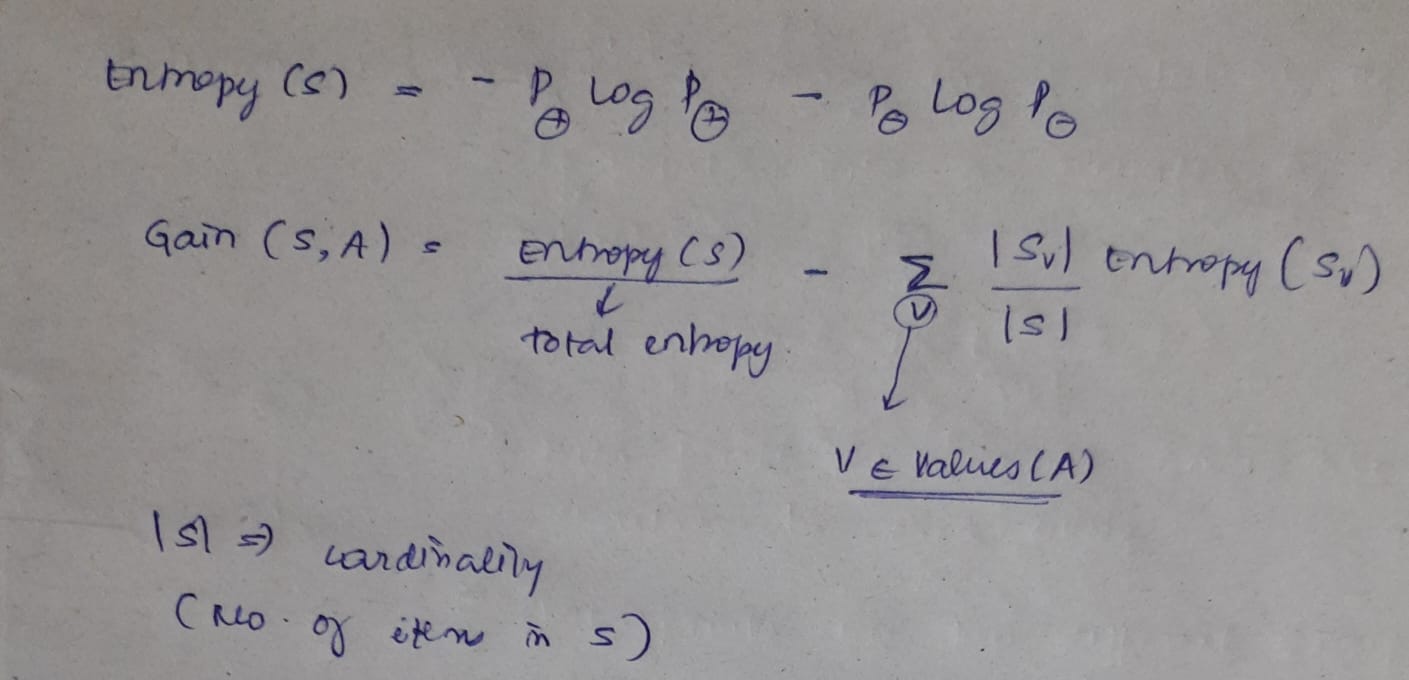 Entropy (S) = - P⊕ Log P⊕ - P⊖ Log P⊖
Gain (S, A) = Entropy (S) - Σ |Sv| / |S| Entropy (Sv)
↓ V
total entropy.
V ∈ Values (A)
|S| ⇒ cardinality
(No. of items in S)